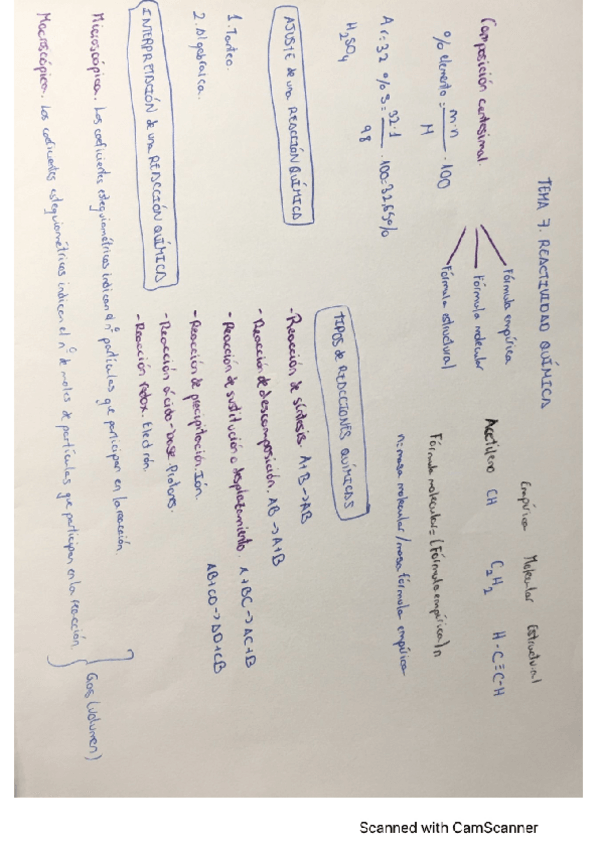 TEMA 7. REACTIVIDAD QUÍMICA
Composición centesimal.
Fórmula empírica
Fórmula molecular
Fórmula estructural
% elemento = m·n / M · 100
Ar=32 % S = 32·1 / 98 · 100 = 32,65%
H2SO4
Empírica Molecular Estructural
Acetileno CH C2H2 H-C≡C-H
Fórmula molecular = (Fórmula empírica)n
n = masa molecular / masa fórmula empírica
AJUSTE de una REACCIÓN QUÍMICA
1. Tanteo.
2. Algebraica.
TIPOS de REACCIONES QUÍMICAS
- Reacción de síntesis A+B→AB
- Reacción de descomposición. AB→A+B
- Reacción de sustitución o desplazamiento. A+BC→AC+B
AB+CD→AD+CB
- Reacción de precipitación. Ión.
- Reacción ácido-base. Protones.
- Reacción redox. Electrón.
INTERPRETACIÓN de una REACCIÓN QUÍMICA
Microscópica. Los coeficientes estequiométricos indican el nº partículas que participan en la reacción.
Macroscópica. Los coeficientes estequiométricos indican el nº de moles de partículas que participan en la reacción.
Gas (volumen)
Scanned with CamScanner